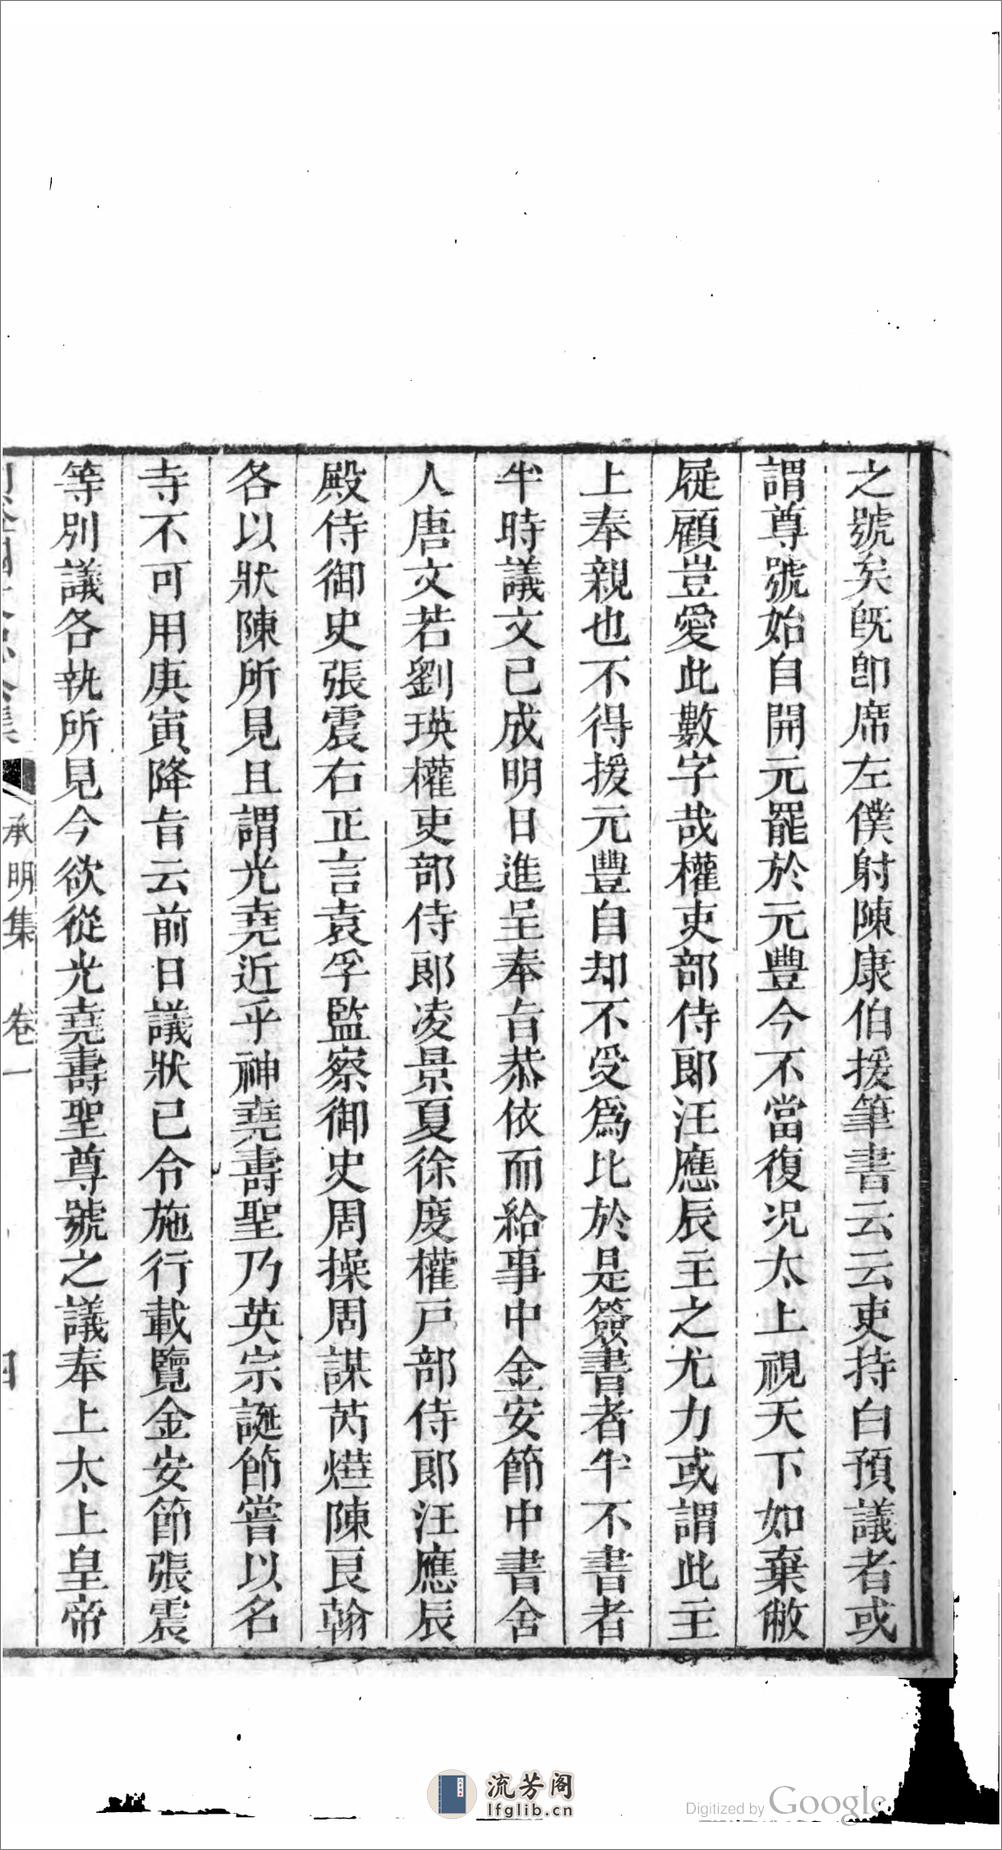 之號矣旣卽席左僕射陳康伯援筆書云云吏持白預議者或
謂尊號始自開元罷於元豐今不當復况太上視天下如棄敝
屣顧豈愛此數字哉權吏部侍郞汪應辰主之尤力或謂此主
上奉親也不得援元豐自却不受爲比於是簽書者半不書者
半時議文已成明日進呈奉旨恭依而給事中金安節中書舍
人唐文若劉瑛權吏部侍郞凌景夏徐度權戸部侍郞汪應辰
殿侍御史張震右正言袁孚監察御史周操周謀芮燁陳良翰
各以狀陳所見且謂光堯近乎神堯壽聖乃英宗誕節嘗以名
寺不可用庚寅降旨云前日議狀已令施行載覽金安節張震
等別議各執所見今欲從光堯壽聖尊號之議奉上太上皇帝
承明集 卷一 四
流芳阁
lfglib.cn
Digitized by Google